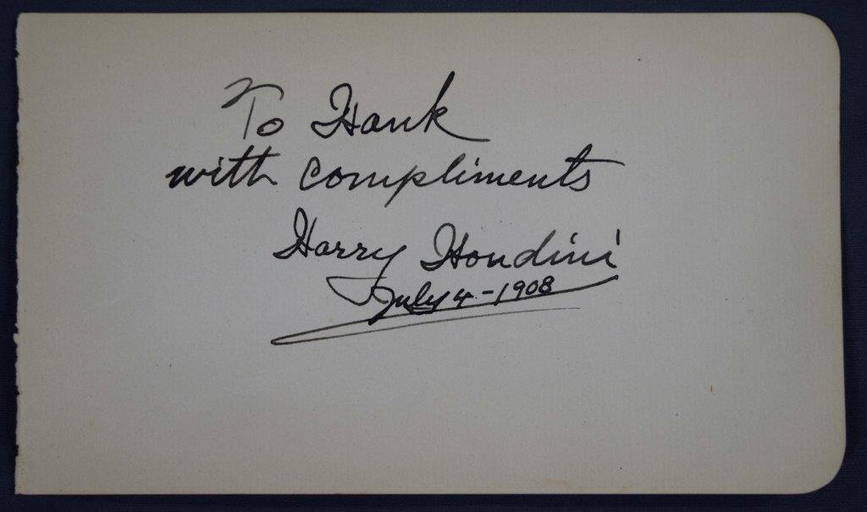 To Hank
with compliments
Harry Houdini
July 4-1908